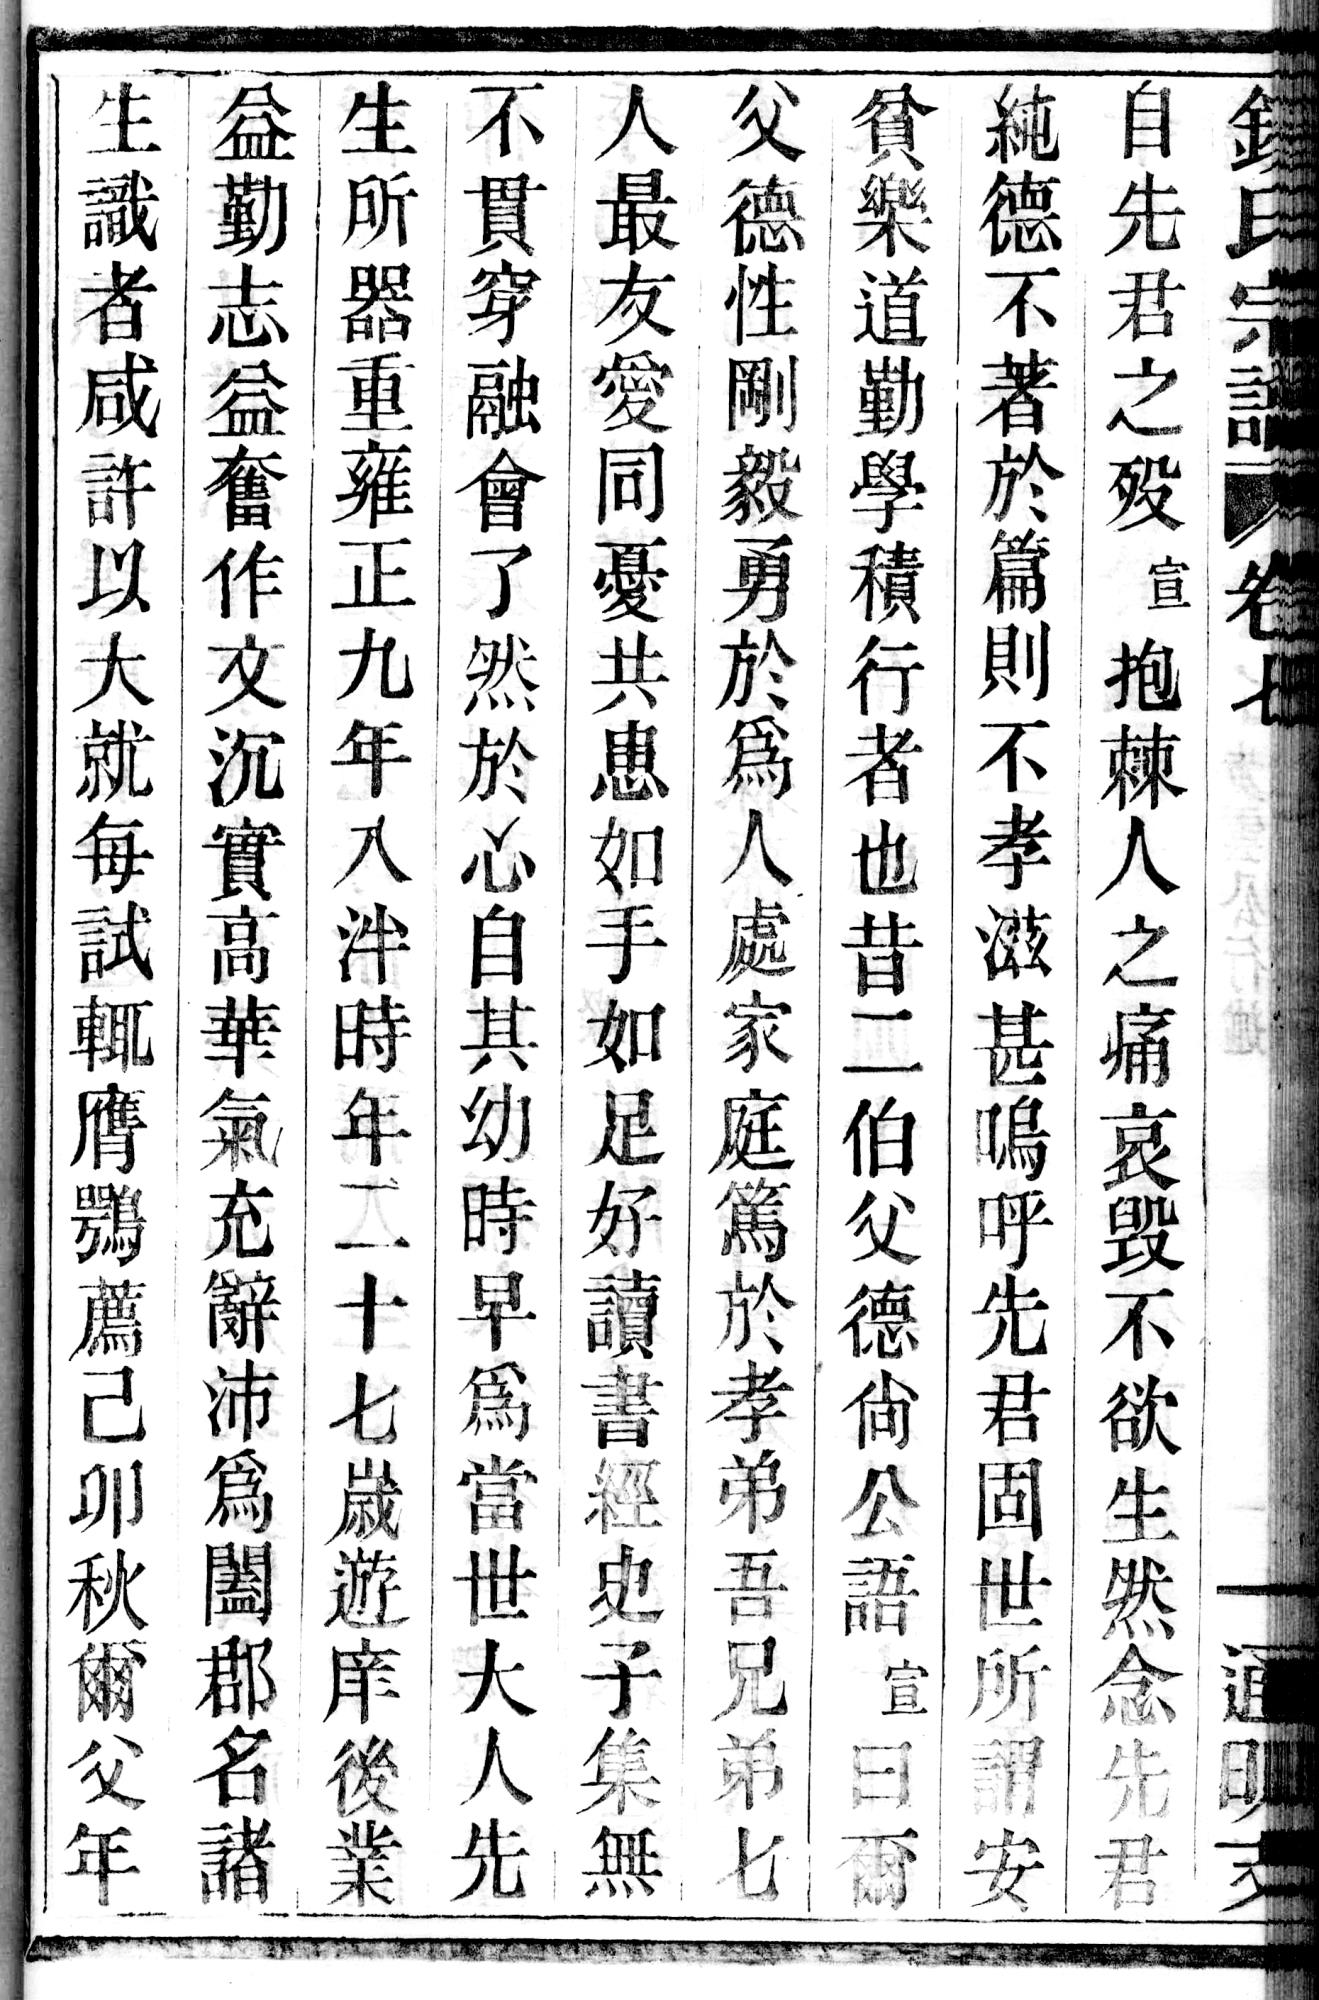 氏宗譜 卷七
自先君之殁宣抱棘人之痛哀毀不欲生然念先君
純德不著於篇則不孝滋甚嗚呼先君固世所謂安
貧樂道勤學積行者也昔二伯父德尙公語宣曰爾
父德性剛毅勇於爲人處家庭篤於孝弟吾兄弟七
人最友愛同憂共患如手如足好讀書經史子集無
不貫穿融會了然於心自其幼時早爲當世大人先
生所器重雍正九年入泮時年二十七歲遊庠後業
益勤志益奮作文沉實高華氣充辭沛爲闔郡名諸
生識者咸許以大就每試輒膺鶚薦己卯秋爾父年